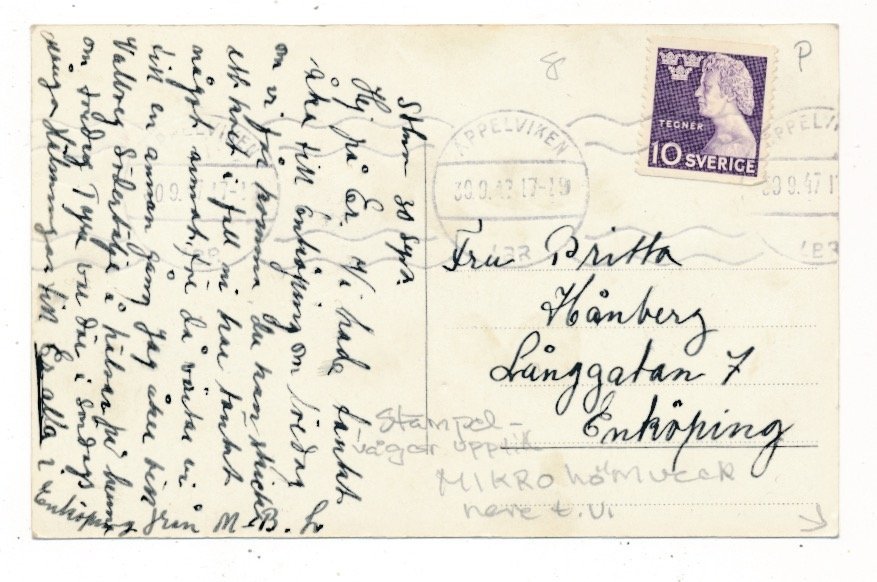 Sthm 30 Sept.
Hej på Er. Vi hade tänkt
åka till Enköping on fredag
om vi får komma, du kan skicka
ett kort i fall ni har tänkt
något annat, för då väntar vi
till en annan gång Jag åker till
Valborg Södertälje o hälsar på henne
om lördag Tyra var där i Söndags
många hälsningar till Er alla i
Enköping från M-B. L
P
8
TEGNER
10 SVERIGE
ÄPPELVIKEN
30.9.47.17-18
ÄPPELVIKEN
30.9.47.17
Fru Britta
Hånberg
Långgatan 7
Enköping
Stämpel-
vågor upptill
MIKRO hörnveck
nere t.v.